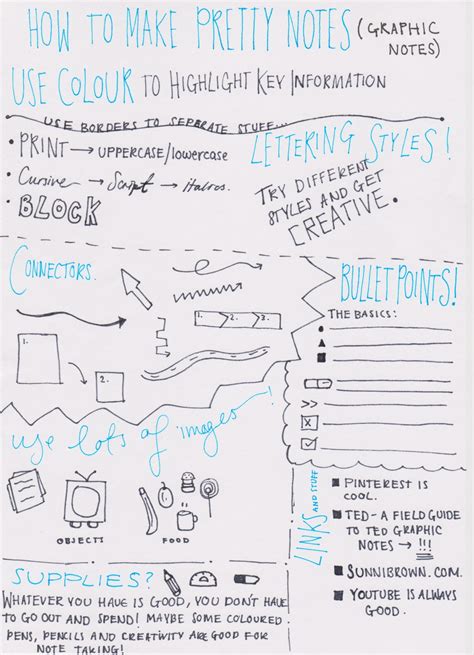 HOW TO MAKE PRETTY NOTES (GRAPHIC NOTES)
USE COLOUR TO HIGHLIGHT KEY INFORMATION
USE BORDERS TO SEPERATE STUFF...
• PRINT → UPPERCASE/lowercase
• Cursive → Script → Italics.
• BLOCK
LETTERING STYLES!
TRY DIFFERENT
STYLES AND GET
CREATIVE.
CONNECTORS.
1.
2.
1.
2.
3.
BULLET POINTS!
THE BASICS:
>>
use lots of images!
OBJECTS
FOOD
LINKS AND STUFF
■ PINTEREST IS
COOL.
■ TED - A FIELD GUIDE
TO TED GRAPHIC
NOTES → !!!
■ SUNNIBROWN.COM.
■ YOUTUBE IS ALWAYS
GOOD.
SUPPLIES?
WHATEVER YOU HAVE IS GOOD, YOU DON'T HAVE
TO GO OUT AND SPEND! MAYBE SOME COLOURED
PENS, PENCILS AND CREATIVITY ARE GOOD FOR
NOTE TAKING!